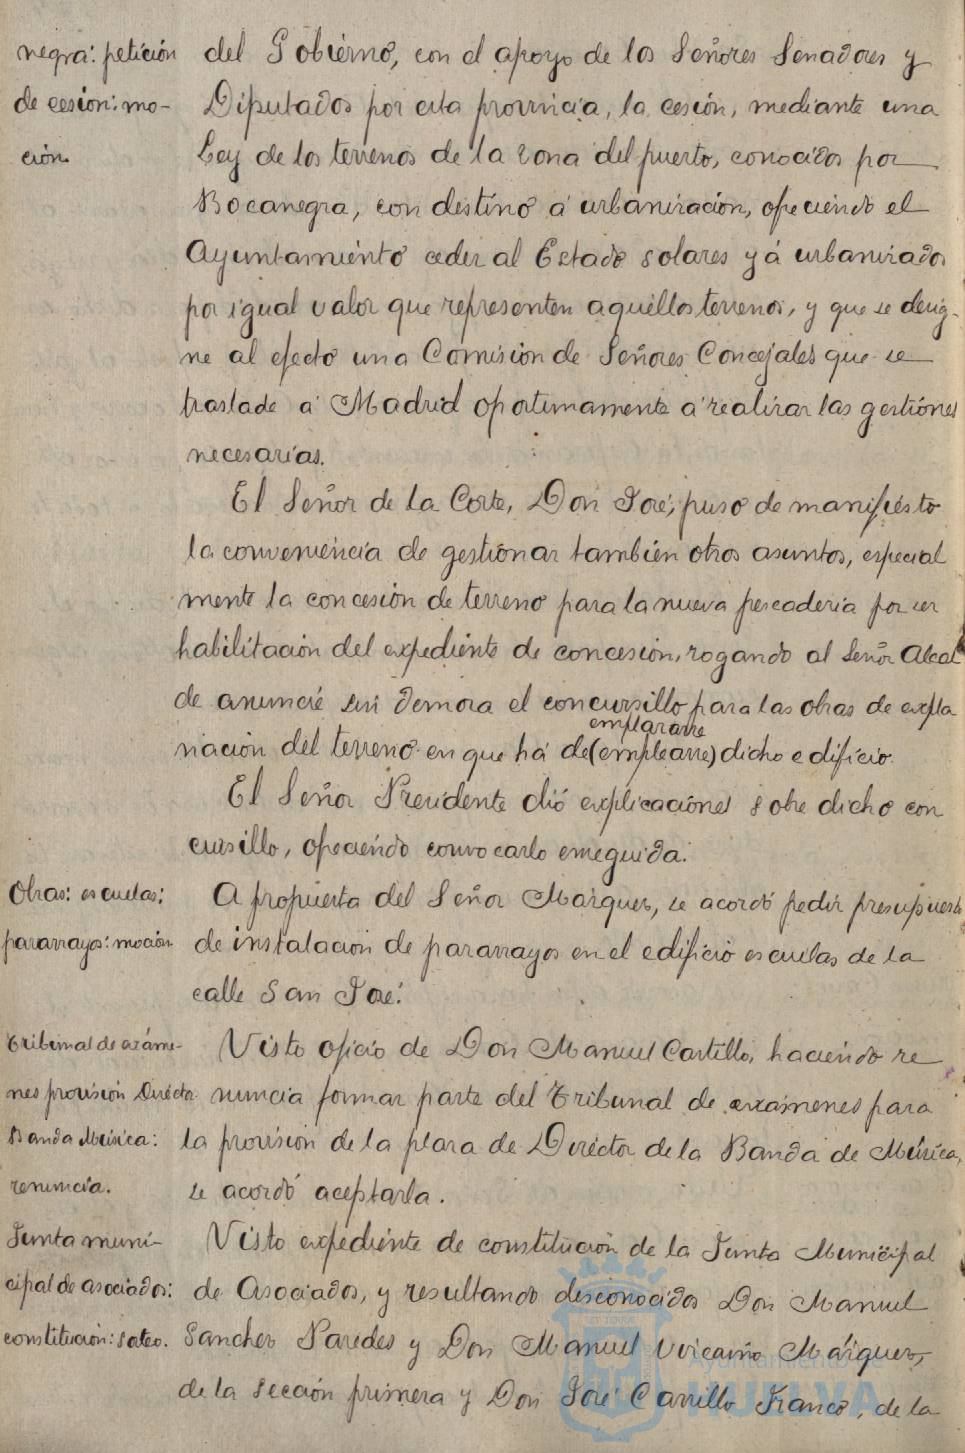 negra: petición
de cesión: mo-
ción.
del Gobierno, con el apoyo de los Señores Senadores y
Diputados por esta provincia, la cesión, mediante una
Ley de los terrenos de la zona del puerto, conocidos por
Bocanegra, con destino á urbanización, ofreciendo el
Ayuntamiento ceder al Estado solares yá urbanizados
por igual valor que representen aquellos terrenos, y que se desig-
ne al efecto una Comision de Señores Concejales que se
traslade á Madrid oportunamente á realizar las gestiones
necesarias.
El Señor de la Corte, Don José, puso de manifiesto
la conveniencia de gestionar también otros asuntos, especial
mente la concesion de terreno para la nueva pescaderia por ser
habilitación del expediente de concesion, rogando al Señor Alcal
de anuncie sin demora el concursillo para las obras de expla
emplazarse
nación del terreno en que há de (emplearse) dicho edificio.
El Señor Presidente dió explicaciones sobre dicho con
cursillo, ofreciendo convocarlo enseguida.
Obras: escuelas:
pararrayos: moción
A propuesta del Señor Márquez, se acordó pedir presupuesto
de instalación de pararrayos en el edificio escuelas de la
calle San José.
Tribunal de exáme-
nes provision Director
Banda Música:
renuncia.
Visto oficio de Don Manuel Castillo, haciendo re
nuncia formar parte del Tribunal de exámenes para
la provision de la plaza de Director de la Banda de Música,
se acordó aceptarla.
Junta muni-
cipal de asociados:
constitución: sorteo.
Visto expediente de constitución de la Junta Municipal
de Asociados, y resultando desconocidos Don Manuel
Sanchez Paredes y Don Manuel Vizcaino Márquez,
de la sección primera y Don José Carrillo Franco, de la
Ayuntamiento de
HUELVA